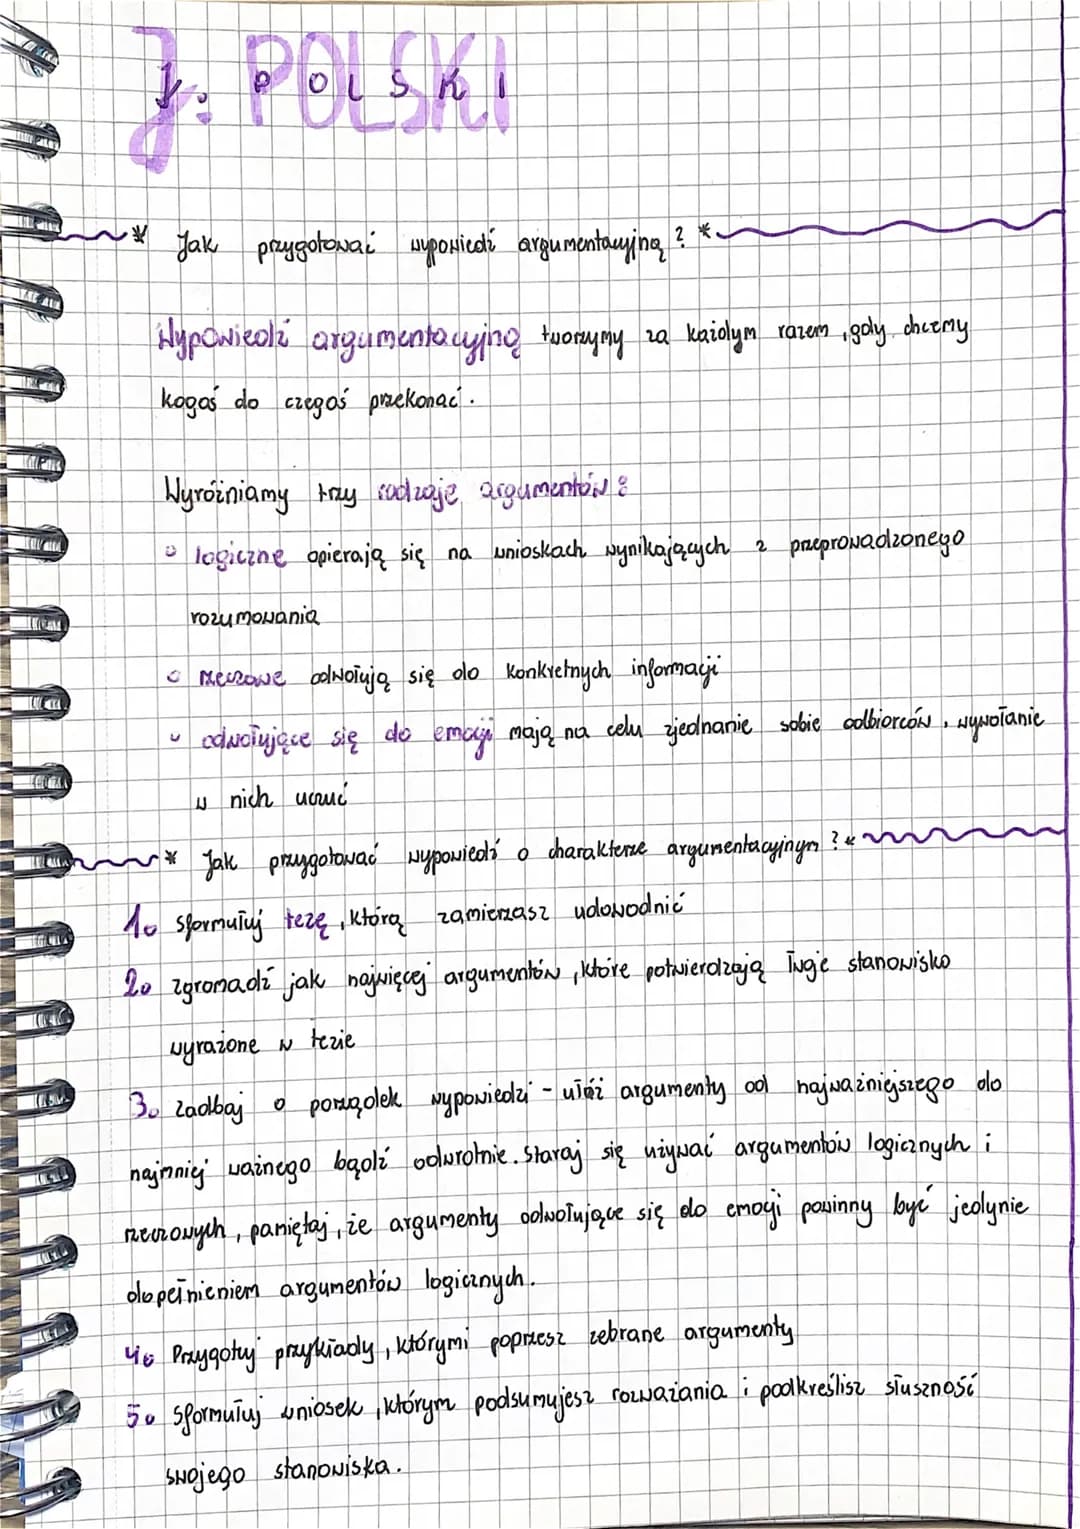 J. POLSKI
* Jak przygotować wypowiedź argumentacyjną? *
Wypowiedź argumentacyjną tworzymy za każdym razem, gdy chcemy
kogoś do czegoś przekonać.
Wyróżniamy trzy rodzaje argumentów:
◦ logiczne opierają się na wnioskach wynikających z przeprowadzonego
rozumowania
◦ rzeczowe odwołują się do konkretnych informacji
◦ odwołujące się do emocji mają na celu zjednanie sobie odbiorców, wywołanie
w nich uczuć
* Jak przygotować wypowiedź o charakterze argumentacyjnym? *
1. sformułuj tezę, którą zamierzasz udowodnić
2. zgromadź jak najwięcej argumentów, które potwierdzają Twoje stanowisko
wyrażone w tezie
3. zadbaj o porządek wypowiedzi - ułóż argumenty od najważniejszego do
najmniej ważnego bądź odwrotnie. Staraj się używać argumentów logicznych i
rzeczowych, pamiętaj, że argumenty odwołujące się do emocji powinny być jedynie
dopełnieniem argumentów logicznych.
4. Przygotuj przykłady, którymi poprzesz zebrane argumenty
5. sformułuj wniosek, którym podsumujesz rozważania i podkreślisz słuszność
swojego stanowiska.